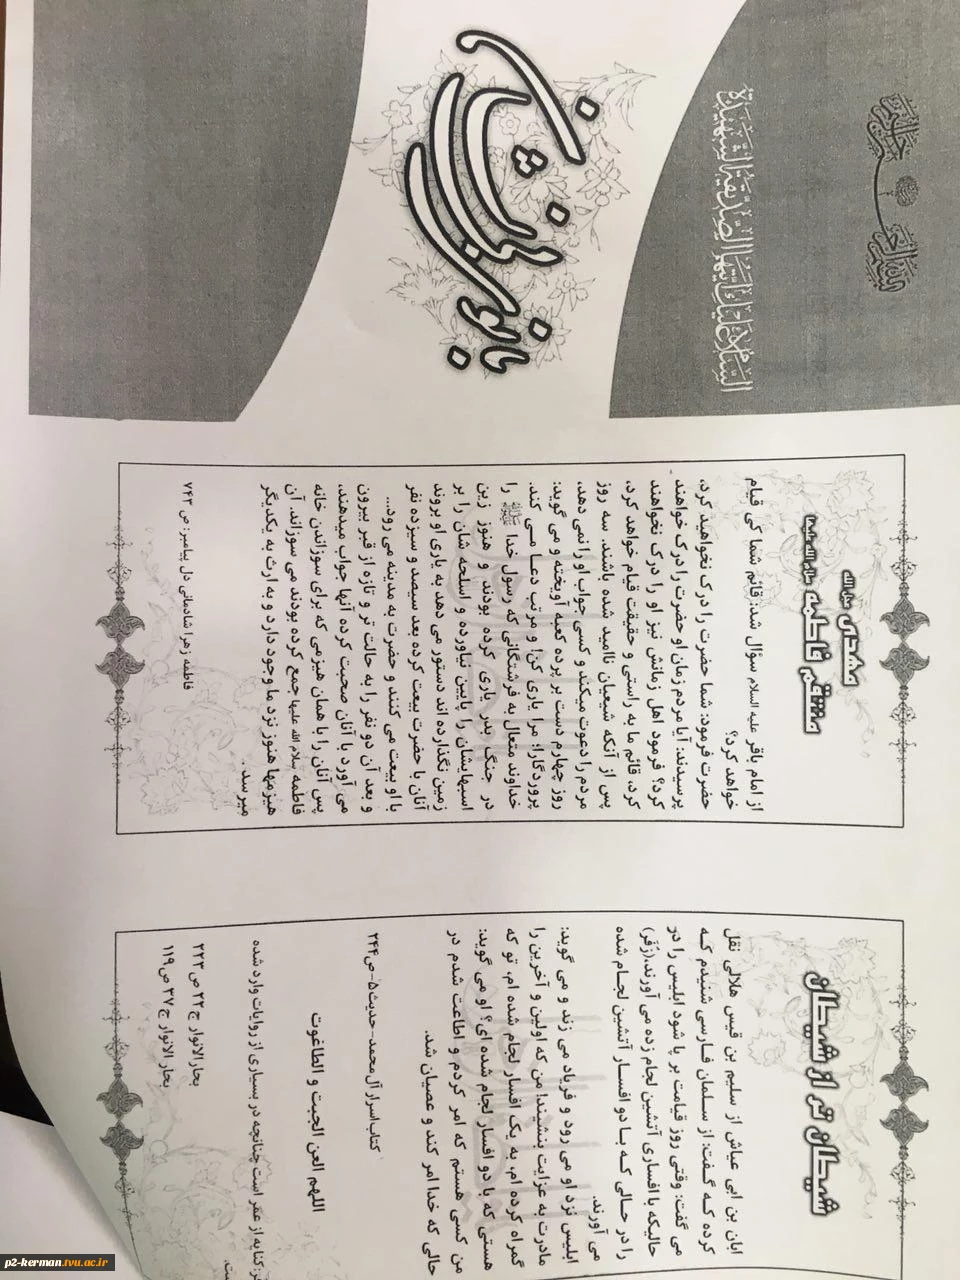 بسم الله الرحمن الرحیم
السلام علیک ایتها الصدیقة الشهیدة
بانوی
مهدی
منتقم فاطمه سلام الله علیها
از امام باقر علیه السلام سؤال شد: قائم شما کی قیام
خواهد کرد؟
حضرت فرمود: شما حضرت را درک نخواهید کرد،
پرسیدند: آیا مردم زمان او حضرت را درک خواهند
کرد؟ فرمود اهل زمانش نیز او را درک نخواهند
کرد، قائم ما به راستی و حقیقت قیام خواهد کرد،
پس از آنکه شیعیان ناامید شده باشند. سه روز
مردم را دعوت میکند و کسی جواب او را نمی دهد،
روز چهارم دست بر پرده کعبه آویخته و می گوید:
پروردگارا؛ مرا یاری کن! و مرتب دعا می کند.
خداوند متعال به فرشتگانی که رسول خدا ﷺ را
در جنگ بدر یاری کرده بودند و هنوز زین
اسبهایشان را پایین نیاورده و اسلحه شان را بر
زمین نگذارده اند دستور می دهد به یاری او بروند
آنان با حضرت بیعت کرده بعد سیصد و سیزده نفر
با او بیعت می کنند و حضرت به مدینه می رود...
و بعد آن دو نفر را به حالت تر و تازه از قبر بیرون
می آورد با آنان صحبت کرده آنها جواب میدهند،
پس آنان را با همان هیزمی که برای سوزاندن خانه
فاطمه سلام الله علیها جمع کرده بودند می سوزاند. آن
هیزمها هنوز نزد ما وجود دارد و به ارث به یکدیگر
میرسد.
فاطمه زهرا شادمانی دل پیامبر: ص ۷۴۳
شیطان تر از شیطان
ابان بن ابی عیاش از سلیم بن قیس هلالی نقل
کرده که گفت: از سلمان فارسی شنیدم که
می گفت: وقتی روز قیامت بر پا شود ابلیس را در
حالیکه با افساری آتشین لجام زده می آورند،(زُفَر)
را در حالی که با دو افسار آتشین لجام شده
می آورند.
ابلیس نزد او می رود و فریاد می زند و می گوید:
مادرت به عزایت بنشیند! من که اولین و آخرین را
گمراه کرده ام، به یک افسار لجام شده ام، تو که
هستی که با دو افسار لجام شده ای؟ او می گوید:
من کسی هستم که امر کردم و اطاعت شدم در
حالی که خدا امر کند و عصیان شد.
کتاب اسرار آل محمد-حدیث۵-ص۲۴۴
اللهم العن الجبت و الطاغوت
کنایه از عمر است چنانچه در بسیاری از روایات وارد شده
بحارالانوار ج ۲۲ ص ۲۲۳
بحار الانوار ج ۳۷ ص ۱۱۹
p2-kerman.tvu.ac.ir